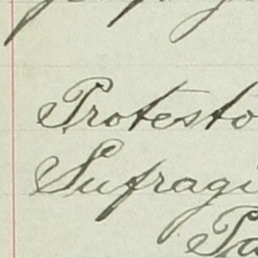 Protesto
Sufragi
Pa